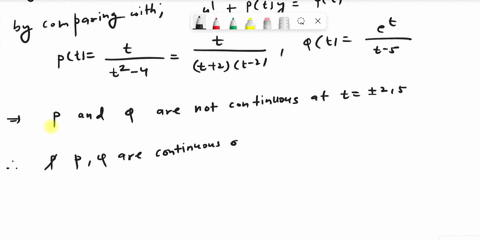 by comparing with; y' + p(t)y = q(t)
p(t) = t/(t²-4) = t/((t+2)(t-2)), Q(t) = e^t/(t-5)
⇒ p and Q are not continuous at t = ±2, 5
∴ p, q are continuous o